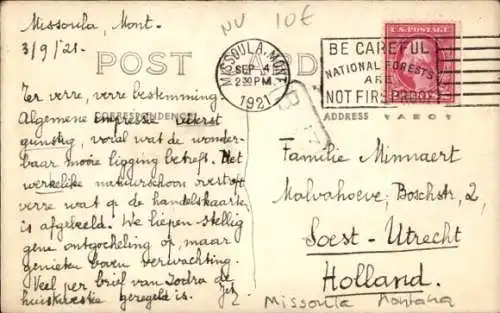 Missoula, Mont.
3/9/'21.
NU 10€
MISSOULA, MONT.
SEP 4
2 30 PM
1921
BE CAREFUL
NATIONAL FORESTS
ARE
NOT FIREPROOF
U.S. POSTAGE
POST CARD
CORRESPONDENCE
ADDRESS
Ter verre, verre bestemming.
Algemene impressie uiterst
gunstig, vooral wat de wonder-
baar mooie ligging betreft. Het
werkelike natuurschoon overtreft
verre wat op de handelskaarten
is afgebeeld. We liepen stellig
gene ontgocheling op, maar
genieten boven verwachting.
Veel per brief van Zodra de
huiskwestie geregeld is.
Familie Minnaert
Malvahoeve, Boschstr, 2,
Soest-Utrecht
Holland.
Missoula Montana